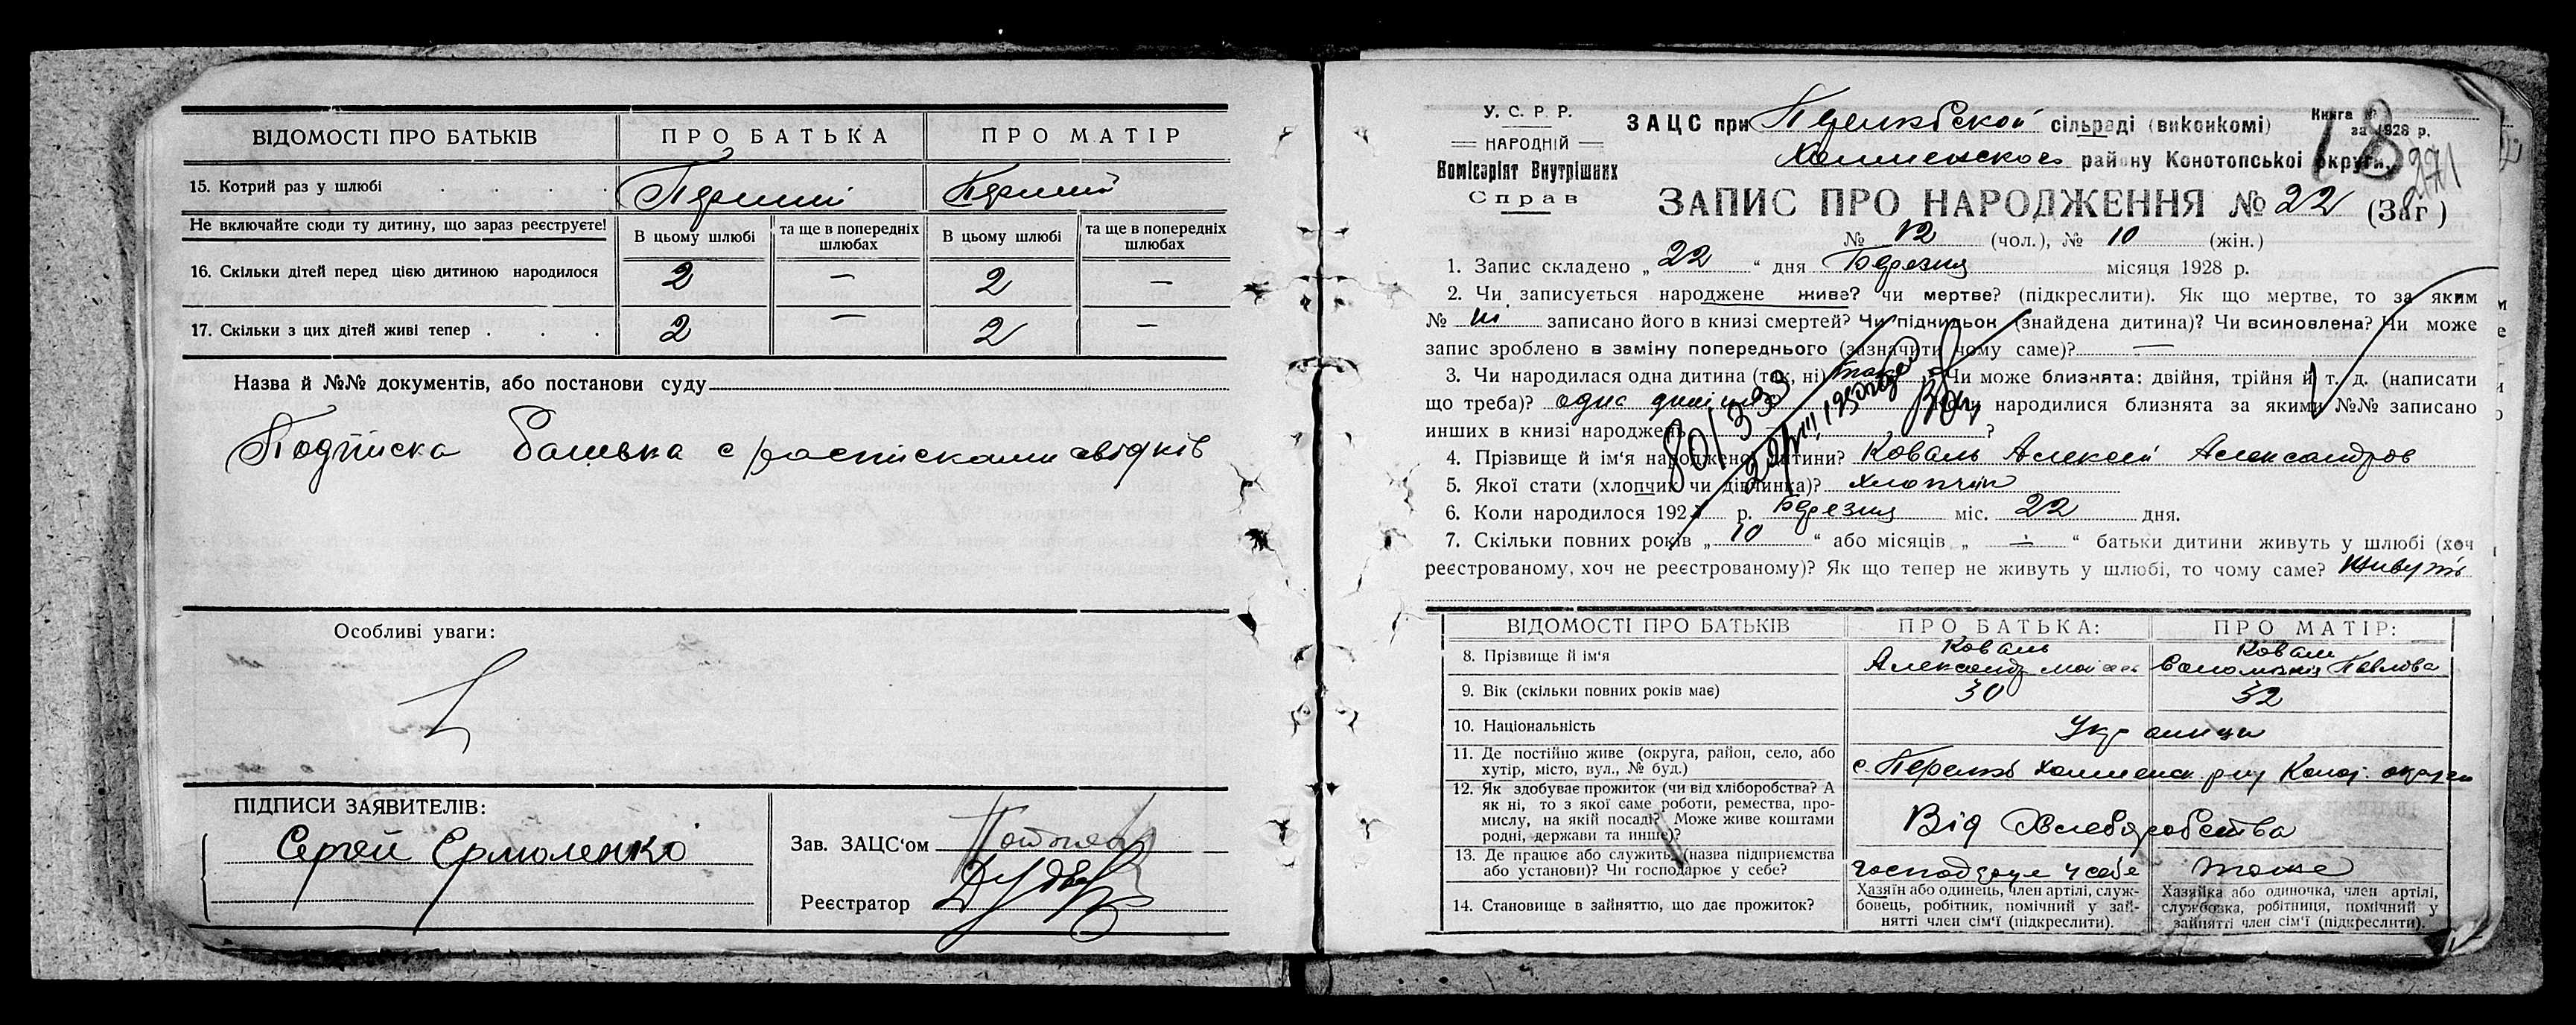 ВІДОМОСТІ ПРО БАТЬКІВ
ПРО БАТЬКА
ПРО МАТІР
15. Котрий раз у шлюбі . . . .
Перший
Перший
Не включайте сюди ту дитину, що зараз реєструєте!
В цьому шлюбі
та ще в попередніх шлюбах
В цьому шлюбі
та ще в попередніх шлюбах
16. Скільки дітей перед цією дитиною народилося
2 — 2 —
17. Скільки з цих дітей живі тепер . . .
2 — 2 —
Назва й №№ документів, або постанови суду
Подписка батька с расписками свідків
Особливі уваги:
ПІДПИСИ ЗАЯВИТЕЛІВ:
Сергей Ермоленко
Зав. ЗАЦС'ом
Реєстратор
У. С. Р. Р.
НАРОДНІЙ
Комісаріят Внутрішніх
Справ
ЗАЦС при сільраді (виконкомі)
району Конотопської округи.
Книга №
за 1928 р.
18
271
ЗАПИС ПРО НАРОДЖЕННЯ № 22 (Заг)
№ 12 (чол.), № 10 (жін.)
1. Запис складено „ 22 “ дня Березня місяця 1928 р.
2. Чи записується народжене живе? чи мертве? (підкреслити). Як що мертве, то за яким
№ записано його в книзі смертей? Чи підкидьок (знайдена дитина)? Чи всиновлена? Чи може
запис зроблено в заміну попереднього (зазначити чому саме)? —
3. Чи народилася одна дитина (так, ні) Чи може близнята: двійня, трійня й т. д. (написати
що треба)? одна Коли народилися близнята за якими №№ записано
инших в книзі народжень ?
80/333
4. Прізвище й ім'я народженої дитини? Коваль Алексей Александров
5. Якої стати (хлопчик чи дівчинка)? хлопчик
6. Коли народилося 192 р. Березня міс. 22 дня.
7. Скільки повних років „ 10 “ або місяців „ — “ батьки дитини живуть у шлюбі (хоч
реєстрованому, хоч не реєстрованому)? Як що тепер не живуть у шлюбі, то чому саме? Живуть
ВІДОМОСТІ ПРО БАТЬКІВ
ПРО БАТЬКА:
ПРО МАТІР:
8. Прізвище й ім'я
Коваль
Александр
Коваль
Павлова
9. Вік (скільки повних років має)
30
32
10. Національність
Українци
11. Де постійно живе (округа, район, село, або
хутір, місто, вул., № буд.)
12. Як здобуває прожиток (чи від хліборобства? А
як ні, то з якої саме роботи, ремества, про-
мислу, на якій посаді? Може живе коштами
родні, держави та инше)?
Від Хлеборобства
13. Де працює або служить (назва підприємства
або установи)? Чи господарює у себе?
господарює у себе
тоже
14. Становище в зайняттю, що дає прожиток?
Хазяїн або одинець, член артілі, служ-
бовець, робітник, помічний у зай-
нятті член сім'ї (підкреслити).
Хазяйка або одиночка, член артілі,
службовка, робітниця, помічний у
зайнятті член сім'ї (підкреслити).